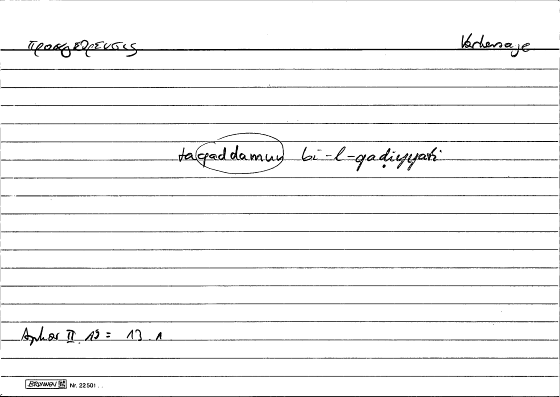 προαγόρευσις Vorhersage
taqaddamun bi-l-qaḍiyyati
Aphor II 19 = 13.1
BRUNNEN Nr. 22501